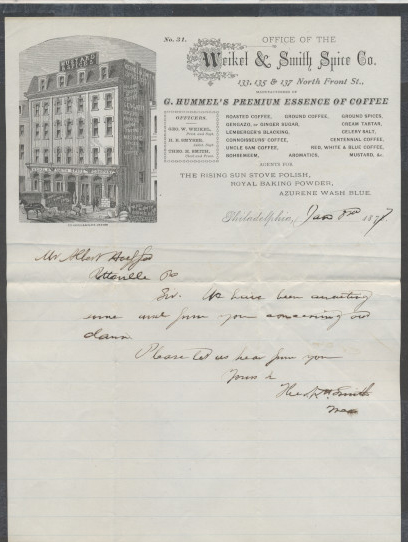 No. 31.
OFFICE OF THE
Weikel & Smith Spice Co.
133, 135 & 137 North Front St.,
MANUFACTURERS OF
G. HUMMEL'S PREMIUM ESSENCE OF COFFEE
OFFICERS.
GEO. W. WEIKEL,
Pres and Supt
D. E. SNYDER,
THEO. R. SMITH,
ROASTED COFFEE, GROUND COFFEE, GROUND SPICES,
GENGAZO, or GINGER SUGAR, CREAM TARTAR,
LEMBERGER'S BLACKING, CELERY SALT,
CONNOISSEURS' COFFEE, CENTENNIAL COFFEE,
UNCLE SAM COFFEE, RED, WHITE & BLUE COFFEE,
AROMATICS, MUSTARD, &c.
AGENTS FOR
THE RISING SUN STOVE POLISH,
ROYAL BAKING POWDER,
AZURENE WASH BLUE.
Philadelphia, 187
Mr Albert
Pottsville Pa
Sir. We have been
from you concerning our
claim.
Please let us hear from you
Yours &
Smith